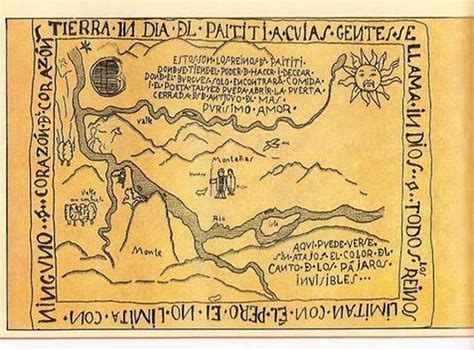 TIERRA IN DIA DL PAITITI A CUIAS GENTES SE
LLAMA INDIOS .S. TODOS LOS REINOS
LIMITAN CON EL PERO EI NO LIMITA CON
NINGUNO .S. CORAZÓN D CORAZÓN
ESTOS SON LOS REINOS D PAITITI
DONDE SE TIENE EL PODER D HACER I DECEAR
DONDE EL BURGUES SOLO ENCONTRARÁ COMIDA
I EL POETA TAL VEZ PUEDA ABRIR LA PUERTA
CERRADA ANTIGUO DL MAS
PURISIMO AMOR.
Valle
Montañas
Valle
Rio
isla
Monte
AQUI PUEDE VERSE
SIN ATAJOS EL COLOR DL
CANTO D LOS PÁJAROS
INVISIBLES...